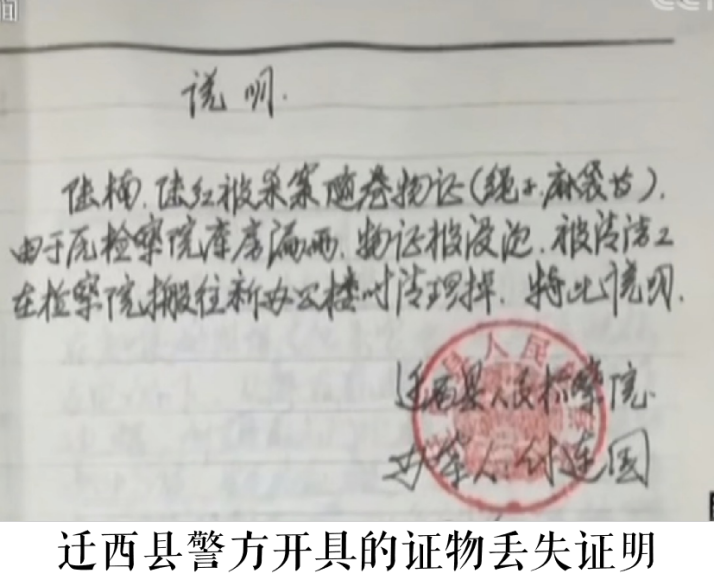 间
CCT
说明.
陆楠、陆红被杀案随卷物证(绳子.麻袋等).
由于原检察院库房漏雨.物证被浸泡.被清洁工
在检察院搬往新办公楼时清理掉.特此说明.
县人民
迁西县人民检察院
办案人付连国
迁西县警方开具的证物丢失证明